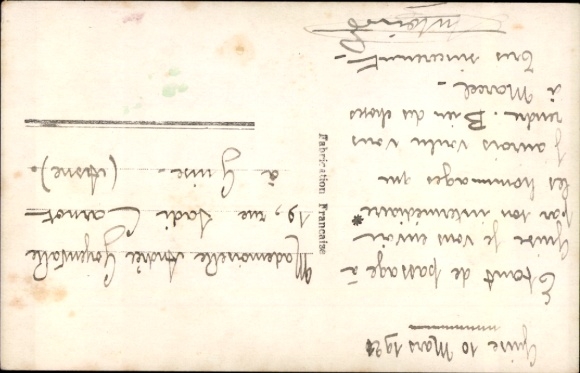 Guise 10 Mars
Etant de passage à
Guise je vous envoie
par son intermédiaire
les hommages que
j'aurais voulu vous
rendre. Bien des choses
à Marcel -
Très sincèrement -
Fabrication Française
Mademoiselle Andrée
19, rue Sadi Carnot
à Guise -
(Aisne).